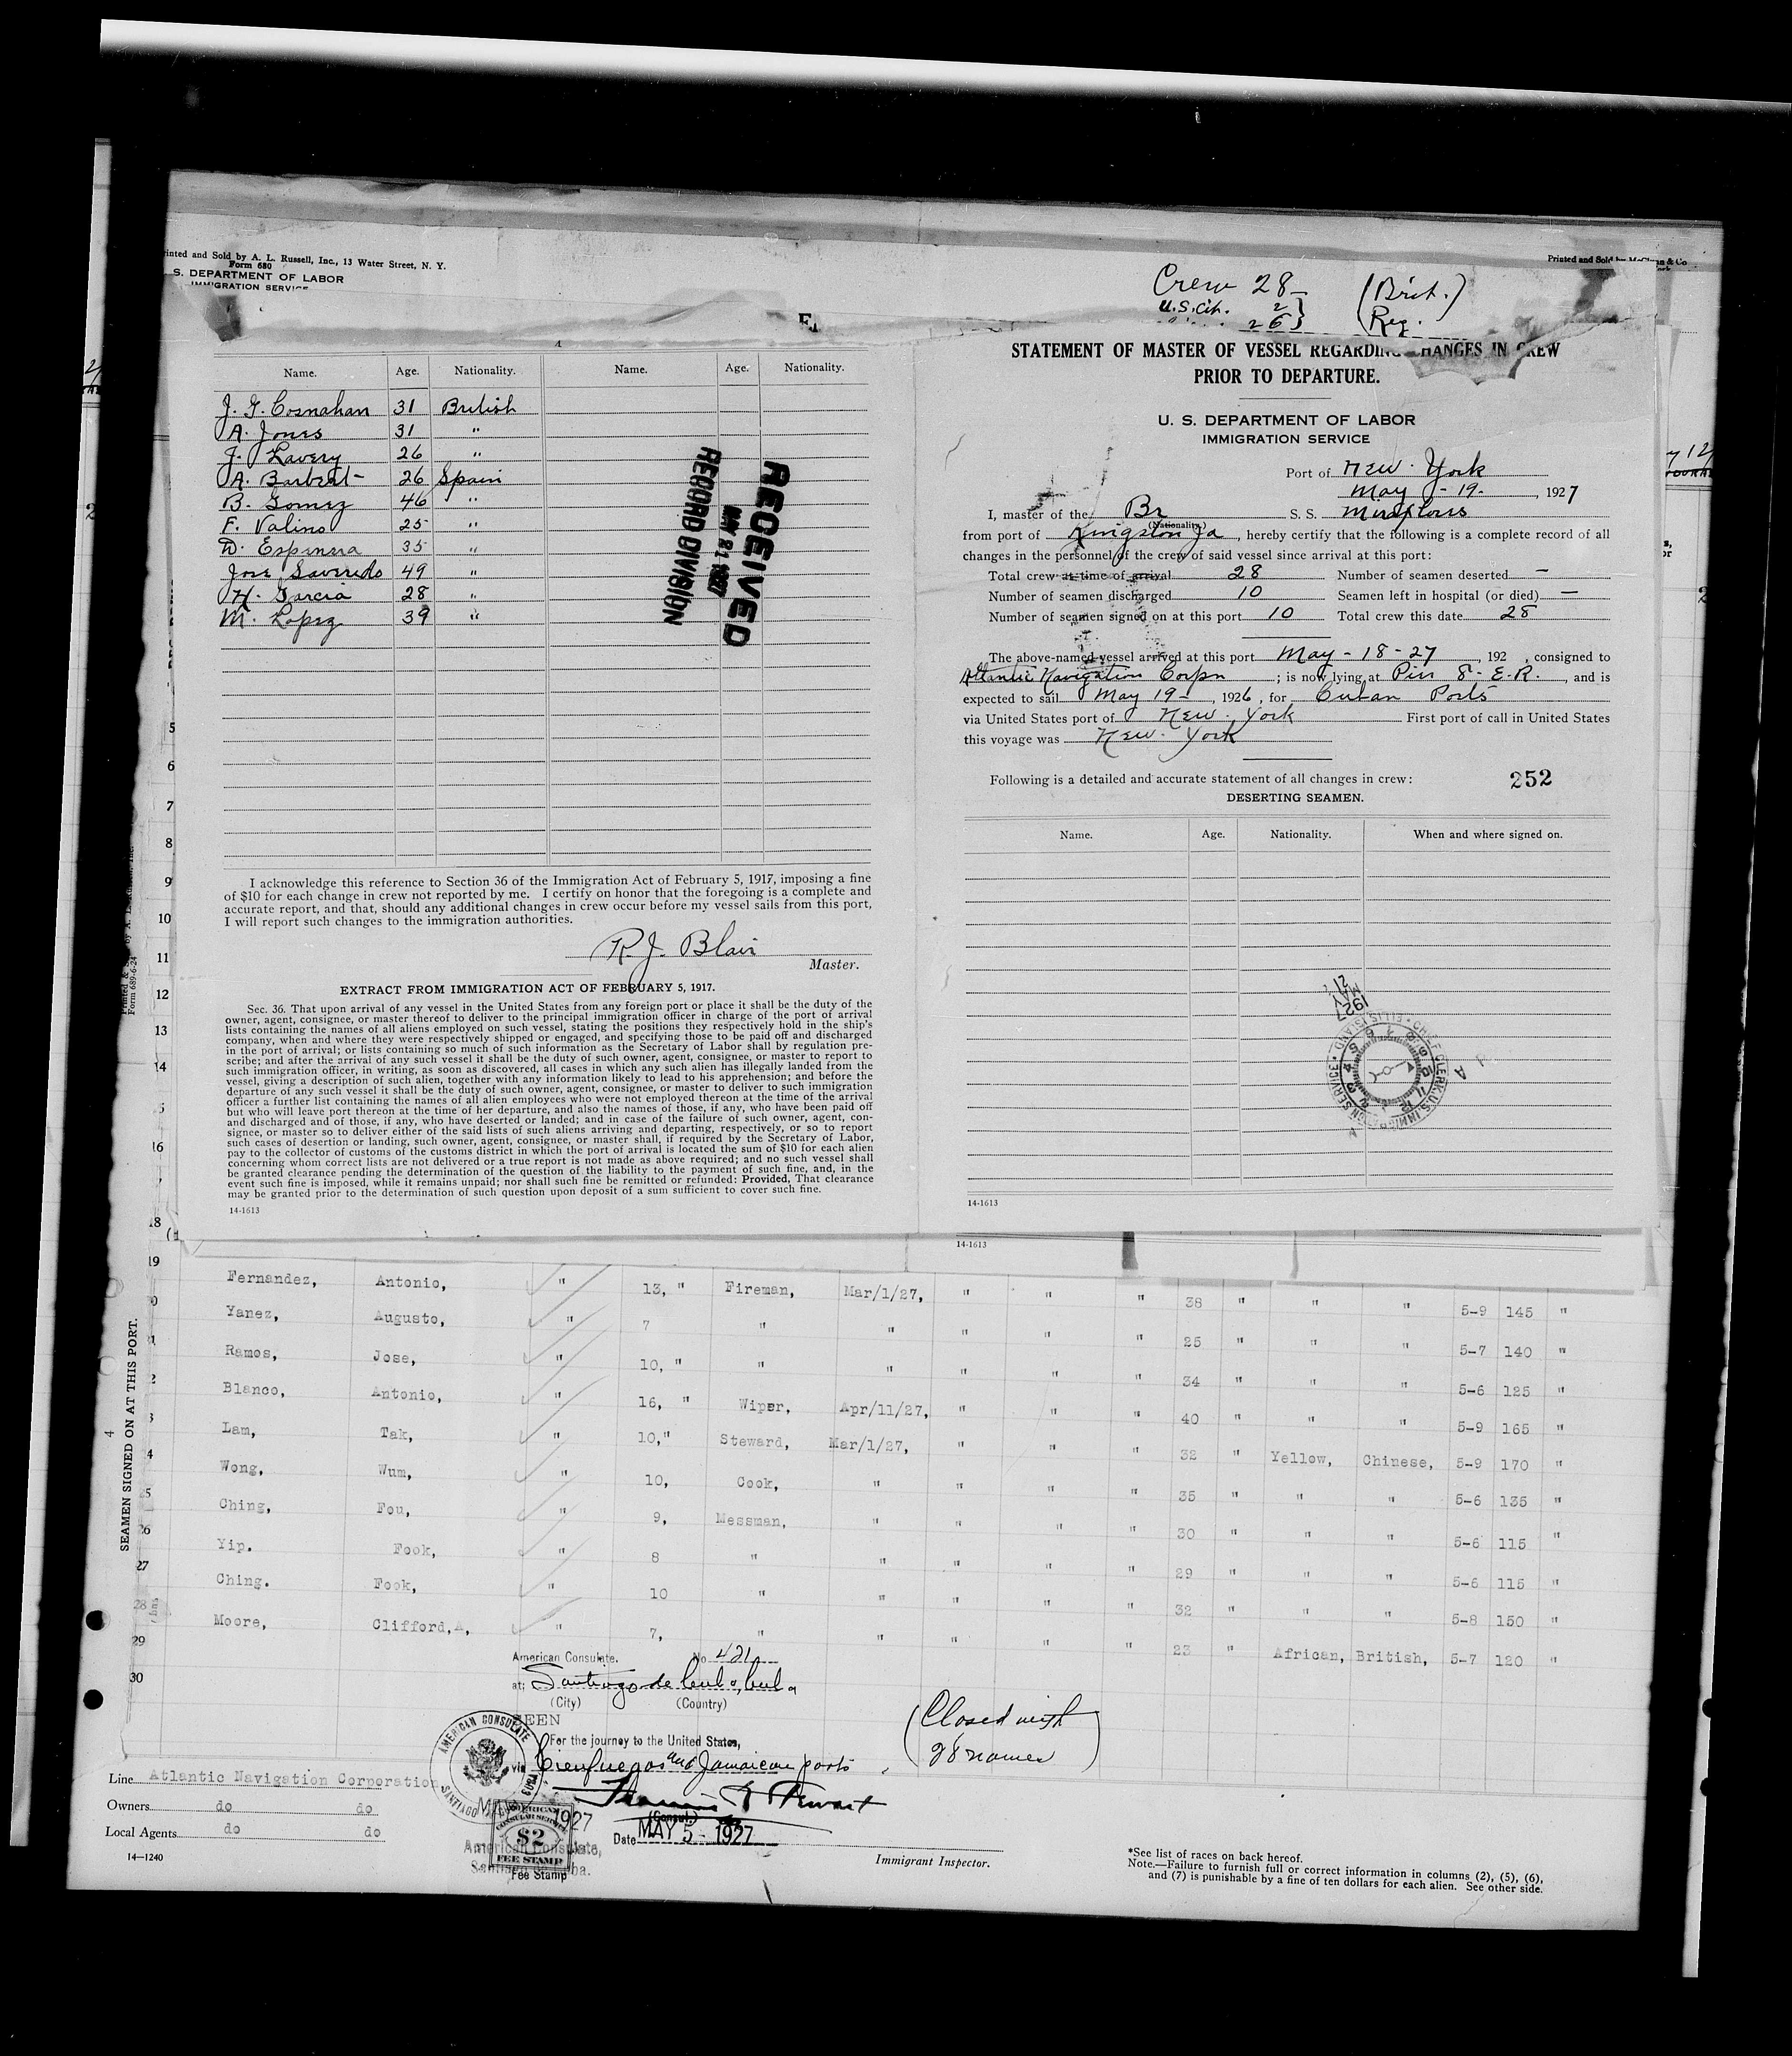 Printed and Sold by A. L. Russell, Inc., 13 Water Street, N. Y.
Form 680
S. DEPARTMENT OF LABOR
IMMIGRATION SERVICE
Name. Age. Nationality. Name. Age. Nationality.
J. G. Cosnahan 31 British
A. Jones 31 "
J. Lavery 26 "
A. Barbeit 26 Spain
B. Gomez 46 "
F. Valino 25 "
D. Espinera 35 "
Jose Saveredo 49 "
H. Garcia 28 "
M. Lopez 39 "
RECEIVED
MAY 21 1927
RECORD DIVISION
I acknowledge this reference to Section 36 of the Immigration Act of February 5, 1917, imposing a fine
of $10 for each change in crew not reported by me. I certify on honor that the foregoing is a complete and
accurate report, and that, should any additional changes in crew occur before my vessel sails from this port,
I will report such changes to the immigration authorities.
R. J. Blair
Master.
EXTRACT FROM IMMIGRATION ACT OF FEBRUARY 5, 1917.
Sec. 36. That upon arrival of any vessel in the United States from any foreign port or place it shall be the duty of the
owner, agent, consignee, or master thereof to deliver to the principal immigration officer in charge of the port of arrival
lists containing the names of all aliens employed on such vessel, stating the positions they respectively hold in the ship's
company, when and where they were respectively shipped or engaged, and specifying those to be paid off and discharged
in the port of arrival; or lists containing so much of such information as the Secretary of Labor shall by regulation pre-
scribe; and after the arrival of any such vessel it shall be the duty of such owner, agent, consignee, or master to report to
such immigration officer, in writing, as soon as discovered, all cases in which any such alien has illegally landed from the
vessel, giving a description of such alien, together with any information likely to lead to his apprehension; and before the
departure of any such vessel it shall be the duty of such owner, agent, consignee, or master to deliver to such immigration
officer a further list containing the names of all alien employees who were not employed thereon at the time of the arrival
but who will leave port thereon at the time of her departure, and also the names of those, if any, who have been paid off
and discharged and of those, if any, who have deserted or landed; and in case of the failure of such owner, agent, con-
signee, or master so to deliver either of the said lists of such aliens arriving and departing, respectively, or so to report
such cases of desertion or landing, such owner, agent, consignee, or master shall, if required by the Secretary of Labor,
pay to the collector of customs of the customs district in which the port of arrival is located the sum of $10 for each alien
concerning whom correct lists are not delivered or a true report is not made as above required; and no such vessel shall
be granted clearance pending the determination of the question of the liability to the payment of such fine, and, in the
event such fine is imposed, while it remains unpaid; nor shall such fine be remitted or refunded: Provided, That clearance
may be granted prior to the determination of such question upon deposit of a sum sufficient to cover such fine.
14-1613
Printed and Sold by
Crew 28 (Brit.)
U.S. Cit. 2 Reg.
26
STATEMENT OF MASTER OF VESSEL REGARDING CHANGES IN CREW
PRIOR TO DEPARTURE.
U. S. DEPARTMENT OF LABOR
IMMIGRATION SERVICE
Port of New York
May - 19 - , 1927
I, master of the Br S. S. Miraflores
(Nationality)
from port of Kingston Ja , hereby certify that the following is a complete record of all
changes in the personnel of the crew of said vessel since arrival at this port:
Total crew at time of arrival 28 Number of seamen deserted —
Number of seamen discharged 10 Seamen left in hospital (or died) —
Number of seamen signed on at this port 10 Total crew this date 28
The above-named vessel arrived at this port May - 18 - 27 , 192 , consigned to
Atlantic Navigation Corpn ; is now lying at Pier 8 - E.R. , and is
expected to sail May 19 - , 1926, for Cuban Ports
via United States port of New York First port of call in United States
this voyage was New York
Following is a detailed and accurate statement of all changes in crew: 252
DESERTING SEAMEN.
Name. Age. Nationality. When and where signed on.
MAY 21 1927
CHIEF CLERK U.S. IMMIGRATION SERVICE · ELLIS ISLAND
14-1613
14-1613
SEAMEN SIGNED ON AT THIS PORT.
Form 689-6-24
5
6
7
8
9
10
11
12
13
14
19 Fernandez, Antonio, " 13, " Fireman, Mar/1/27, " " " 38 " " " 5-9 145 "
Yanez, Augusto, " 7 " " " " " 25 " " " 5-7 140 "
Ramos, Jose, " 10, " " " " " " 34 " " " 5-6 125 "
Blanco, Antonio, " 16, " Wiper, Apr/11/27, " " " 40 " " " 5-9 165 "
Lam, Tak, " 10," Steward, Mar/1/27, " " " 32 " Yellow, Chinese, 5-9 170 "
Wong, Wum, " 10, Cook, " " " " 35 " " " 5-6 135 "
Ching, Fou, " 9, Messman, " " " " 30 " " " 5-6 115 "
26 Yip. Fook, " 8 " " " " " 29 " " " 5-6 115 "
27 Ching. Fook, " 10 " " " " " 32 " " " 5-8 150 "
28 Moore, Clifford,A, " 7, " " " " " 23 " African, British, 5-7 120 "
29
30
American Consulate. No 421
at; Santiago de Cuba, Cuba
(City) (Country)
SEEN
For the journey to the United States,
via Cienfuegos and Jamaican ports
(Closed with
28 names)
Francis R Stewart
(Consul)
Date MAY 5 - 1927
AMERICAN CONSULATE
SANTIAGO CUBA
AMERICAN
CONSULAR SERVICE
$2
FEE STAMP
American Consulate,
Fee Stamp
Line Atlantic Navigation Corporation
Owners do do
Local Agents do do
14—1240
Immigrant Inspector.
*See list of races on back hereof.
Note.—Failure to furnish full or correct information in columns (2), (5), (6),
and (7) is punishable by a fine of ten dollars for each alien. See other side.